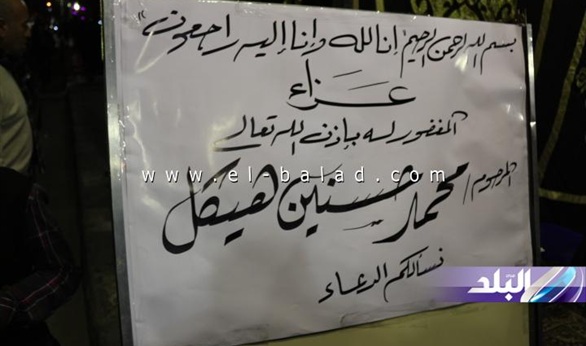 بسم الله الرحمن الرحيم "إنا لله وإنا إليه راجعون"
عزاء
المغفور له بإذن الله تعالى
المرحوم/ محمد حسنين هيكل
www.el-balad.com
نسألكم الدعاء
البلد